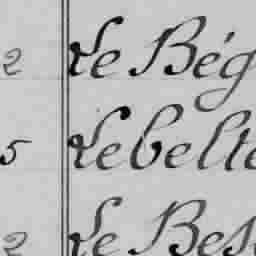 2 Le Bég
5 Lebelte
2 Le Bes